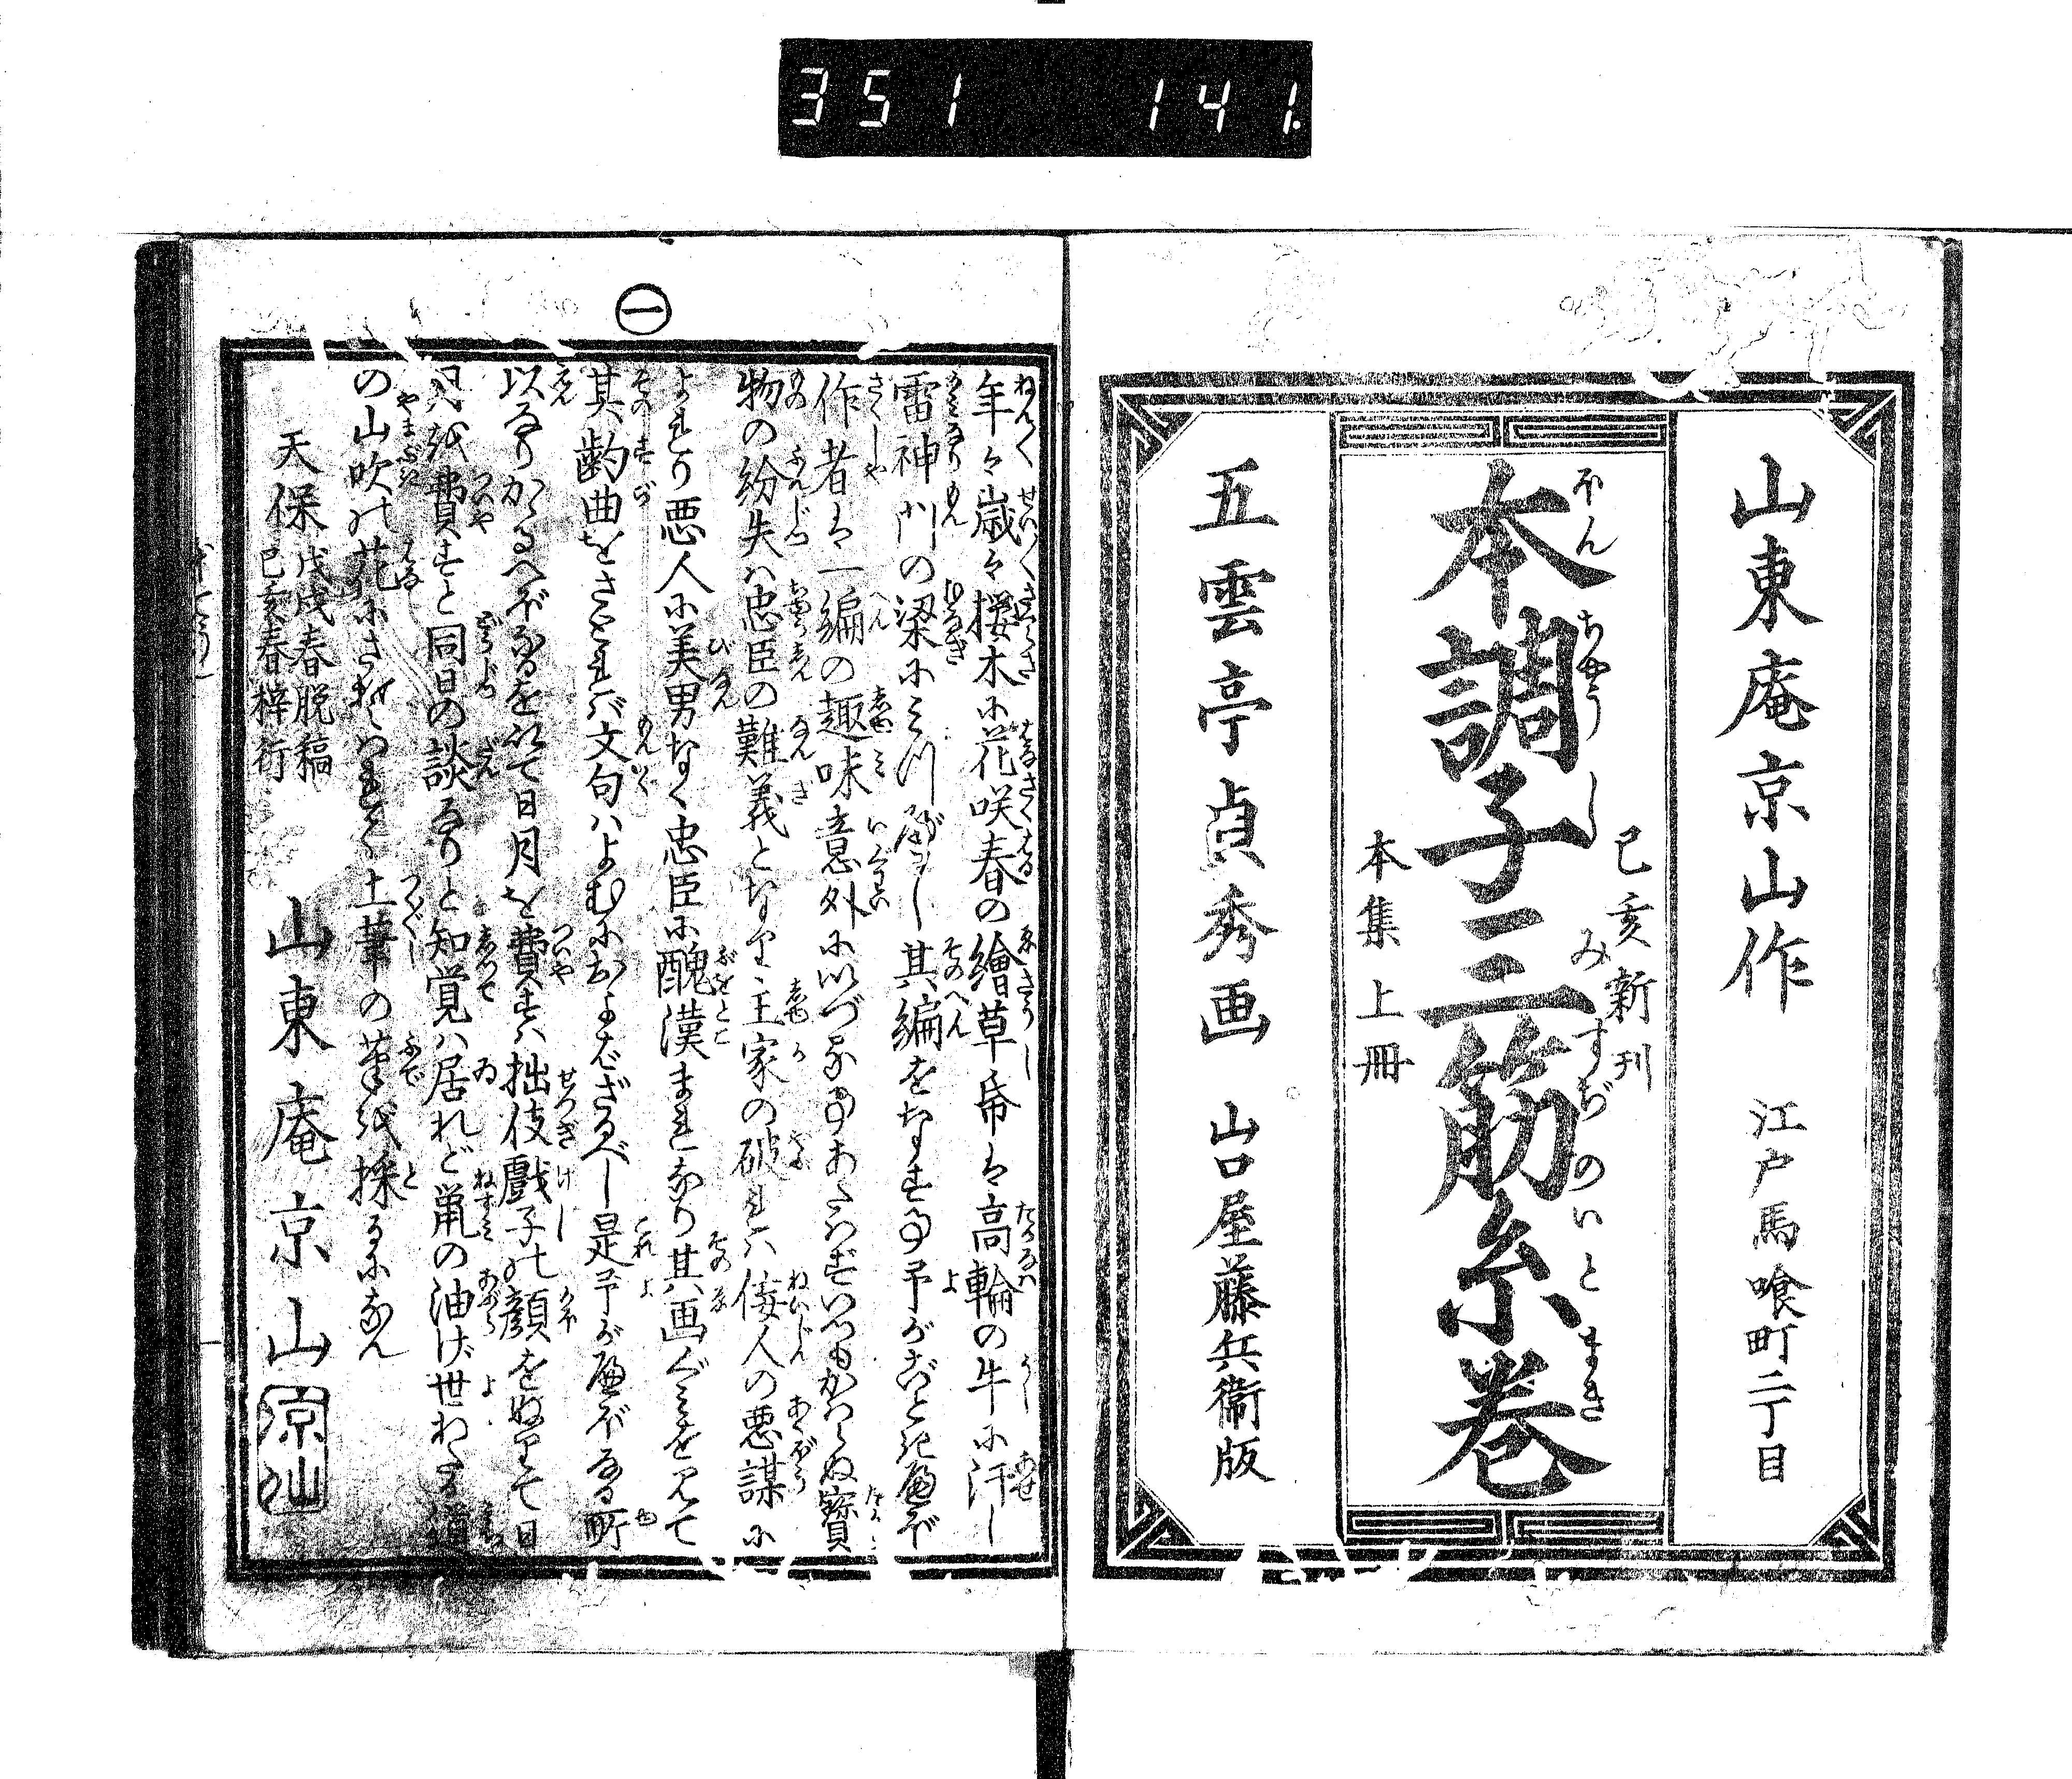 351 141.
山東庵京山作 江戸馬喰町二丁目
己亥新刊
本調子三筋糸巻
ほんちやうしみすぢのいとまき
本集上冊
五雲亭貞秀画 山口屋藤兵衛版
㊀
年々歳々桜木に花咲春の繪草帋は高輪の牛に汗し
雷神門の梁にみつべし其編をなす事予が
作者は一編の趣味意外にいづる事あたはずいつもかはらぬ寳
物の紛失ハ忠臣の難義となり主家の破れハ佞人の悪謀に
よれり悪人に美男なく忠臣に醜漢まれなり其画ぐみを見て
其齣曲をさとれバ文句ハよむにおよばざるべし是予が
以なりかるがゆへを以て日月を費すハ拙伎戯子の顔をぬりて日
月を費すと同日の談なりと知覚ハ居れど鼠の油げ世わたる道
の山吹の花にさそはれて土筆の筆を採るになん
天保 戊戌春脱稿
己亥春梓行
山東庵京山